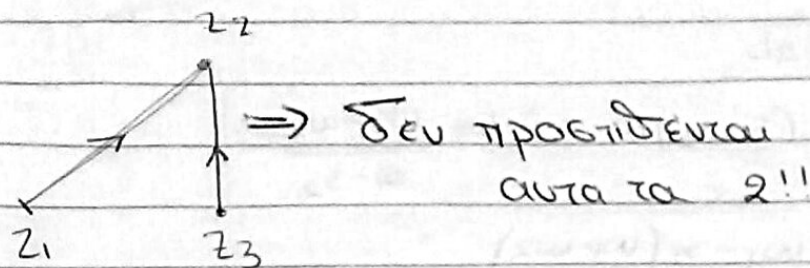 z2
⇒ δεν προστιθενται
αυτα τα 2!!
z1 z3